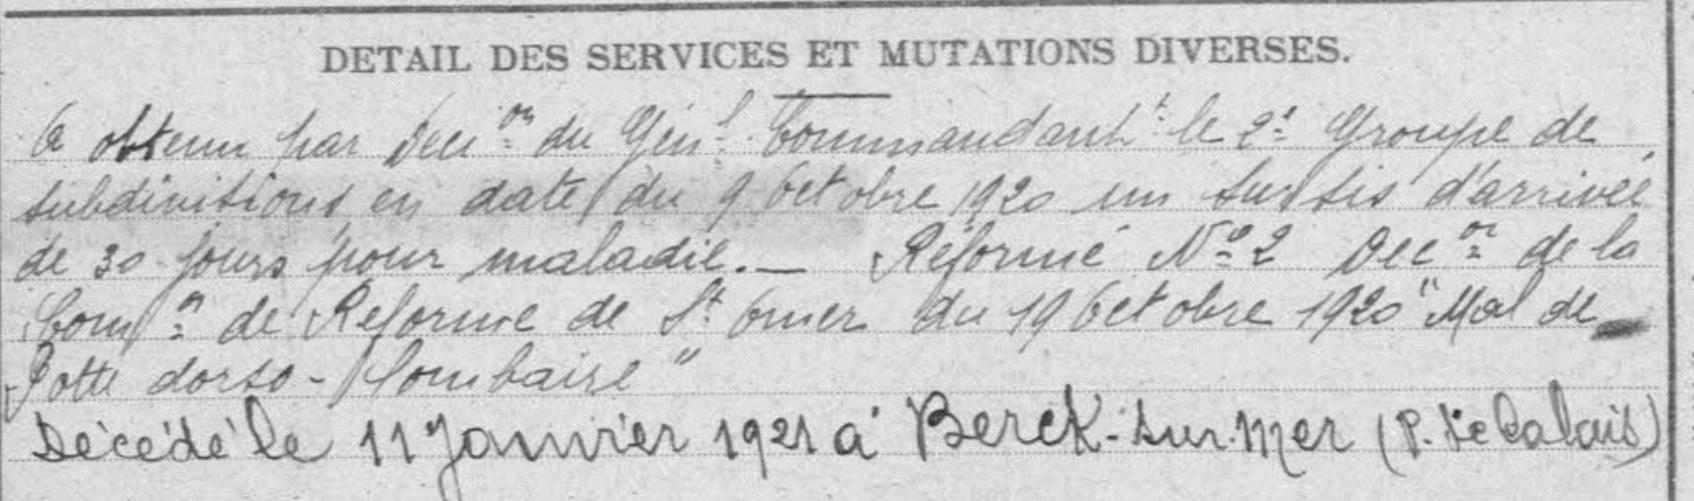 DETAIL DES SERVICES ET MUTATIONS DIVERSES.
A obtenu par Deci.on du Gén.l Commandant le 2e Groupe de
subdivitions en date du 9 Octobre 1920 un sursis d'arrivée
de 30 jours pour maladie. — Réformé No 2 Dec.on de la
Com.on de Reforme de St Omer du 19 Octobre 1920 "Mal de
Potte dorso-lombaire"
Décédé le 11 Janvier 1921 à Berck-sur-Mer (P. de Calais)